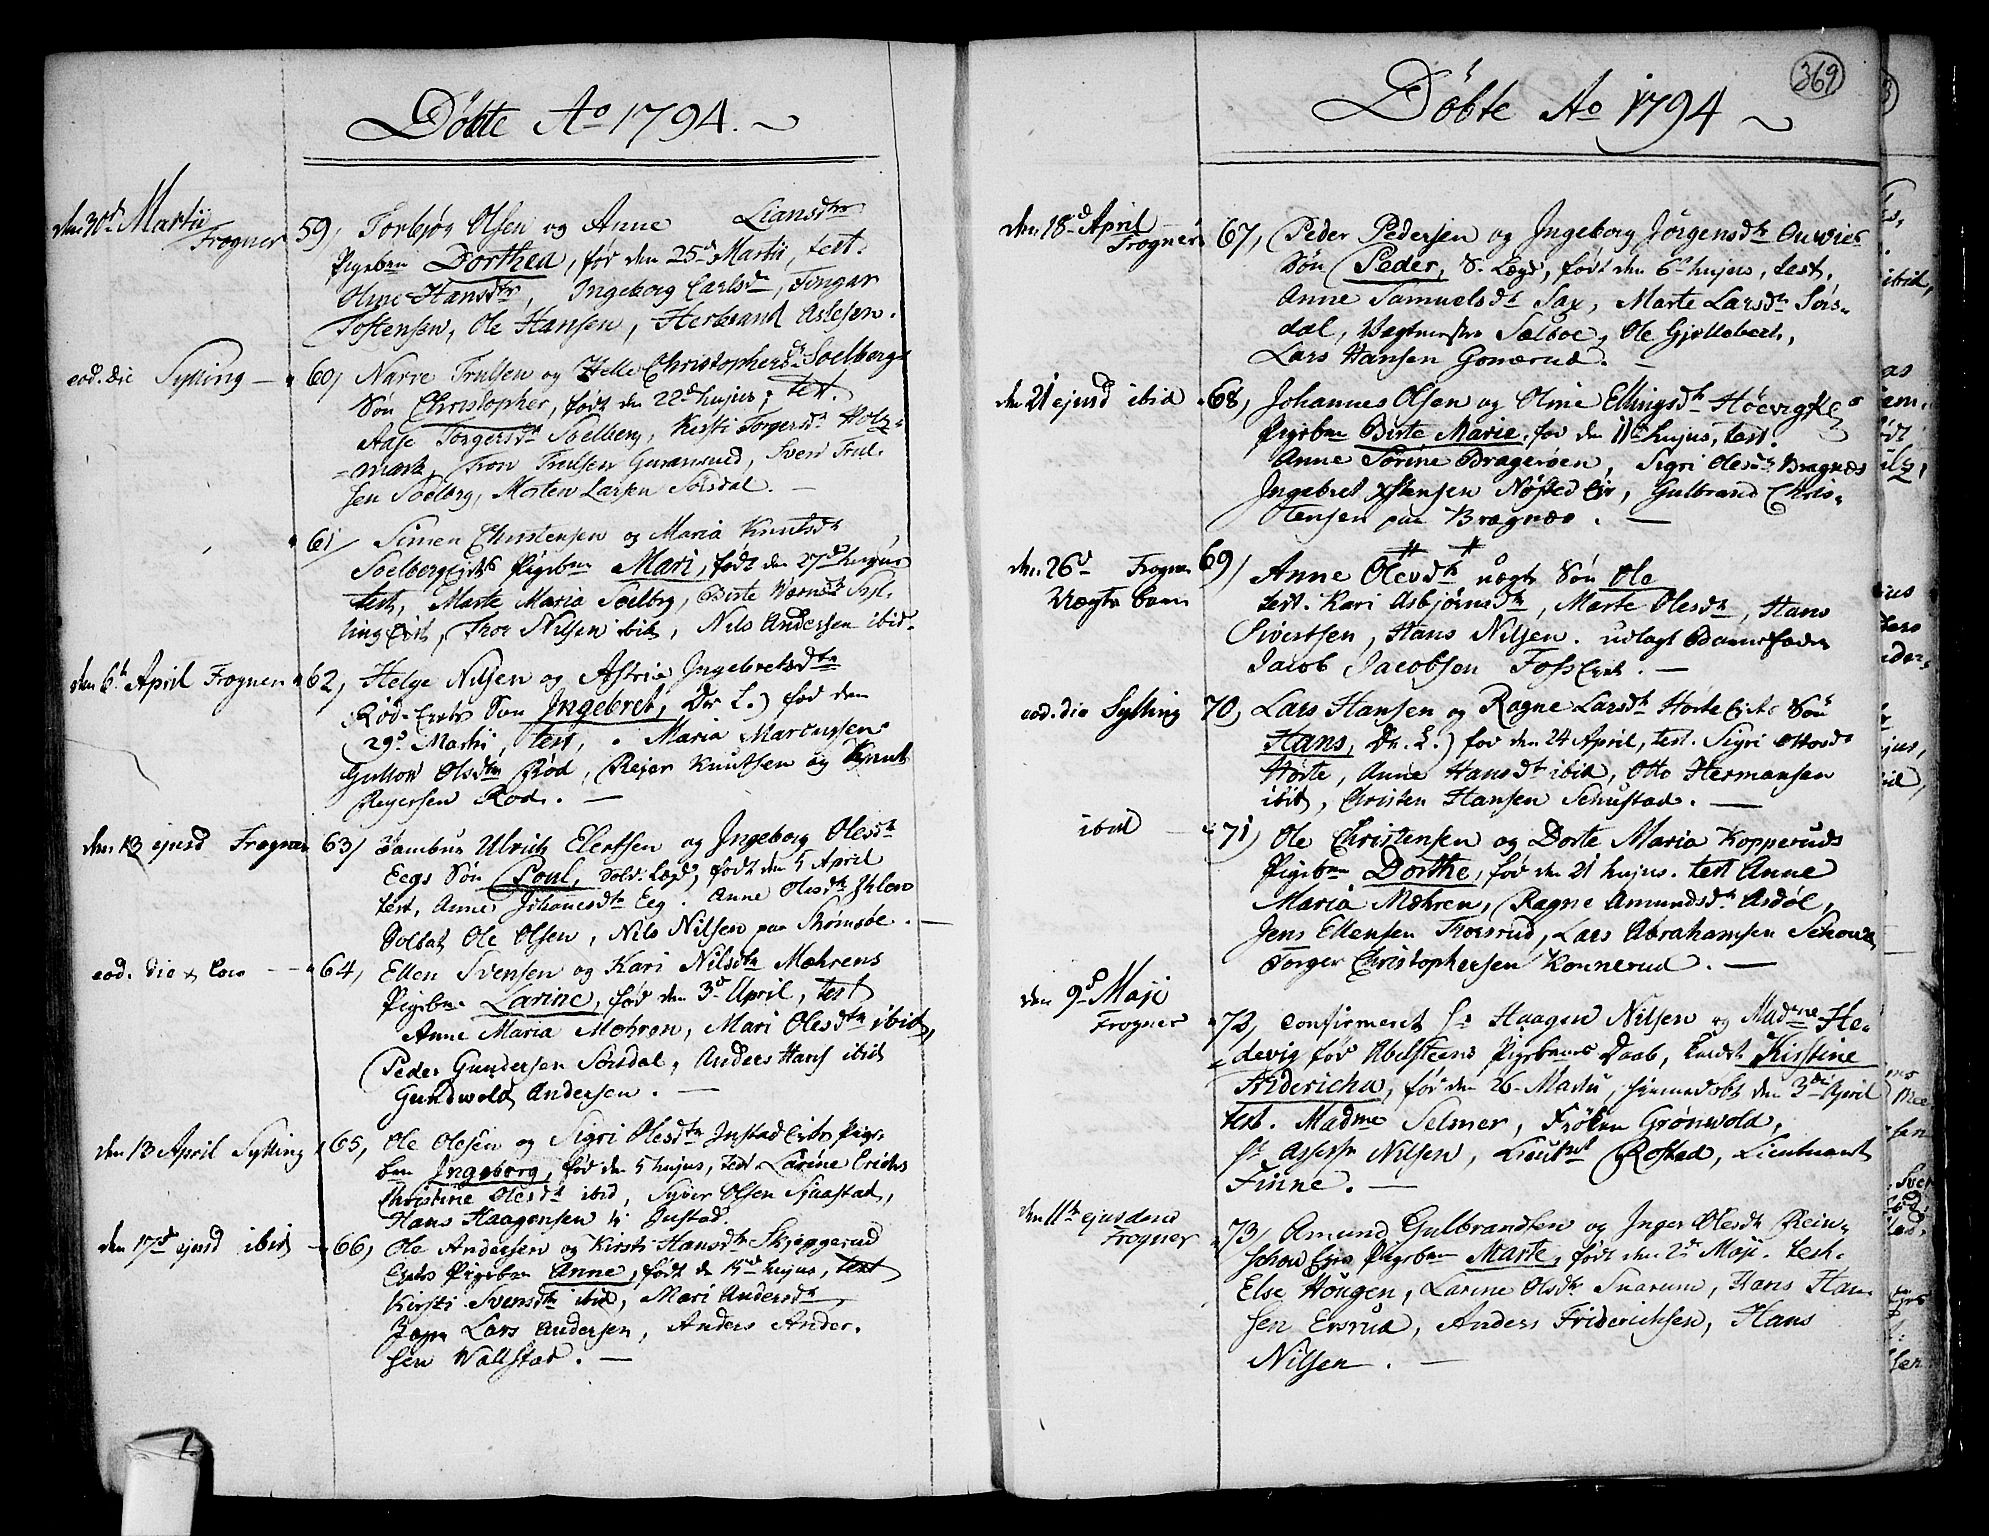 Döbte Ao 1794.
den 30d Martii
Frogner
59, Torbjør Olsen og Anne Liansdtr
Pigebn Dorthea, fød den 25d Martii, test.
Oline Hansdtr, Ingeborg Carlsdn, Tongar
Tostensen, Ole Hansen, Herbrand Aslesen.
eod. die Sylling
60, Narve Trulsen og Helle Christophersdr Soelbergs
Søn Christopher, født den 22d hujus, test.
Aase Torgersdtr Soelberg, Kirsti Torgersdtr Holtz-
mark, Tron Trulsen Guransrud, Sven Trul-
sen Soelberg, Morten Larsen Sørsdal.
61, Simen Christensen og Maria Knutsdtr
Soelberg Eiets Pigebn Mari, født den 27d hujus
test, Marte Maria Soelberg, Birte Sylling Eiet, Tron Nilsen ibid, Nils Andersen ibid.
den 6te April Frogner
62, Helge Nilsen og Astrie Ingebretsdtr
Rød-Eiets Søn Ingebret, Dr L.) fød den
29d Martii, test, Maria Marcussen
Gullow Olsdtr Rød, Reier Knutsen og Knut
Reyersen Rød.
den 13 ejusd Frogner
63, Tambur Ulrich Elertsen og Ingeborg Olesdtr
Eegs Søn Poul, Sold. Lægd, født den 5 April
test, Anne Johanesdtr Eeg. Anne Olesdtr
Soldat Ole Olsen, Nils Nilsen paa Strømsøe.
eod. die & loco
64, Ellen Svensen og Kari Nilsdtr Mæhrens
Pigebn Larine, fød den 3d April, test
Anne Maria Mæhren, Mari Olesdtr ibid,
Peder Gundersen Sørsdal, Anders Hans ibid
Gundwold Andersen.
den 13 April Sylling
65, Ole Olesen og Sigri Olesdtr Justad Eiets Pige-
bn Ingeborg, fød den 5 hujus, test Larine Erichs
Christine Olesdtr ibid, Syver Olsen Sjaastad,
Hans Haagensen Justad.
den 17d ejusd ibid
66, Ole Andersen og Kirsti Hansdtr Skjeggerud
Eiets Pigebn Anne, født d. hujus, test
Kirsti Svensdtr ibid, Mari Andersdtr
Lars Andersen, Anders Ander-
sen Wallstad.
369
Döbte Ao 1794
den 18d April
Frogner
67, Peder Pedersen og Ingeborg Jörgensdtr Ouwies
Søn Peder, S. Lægd, født den 6te hujus, test.
Anne Samuelsdtr Sax, Marte Larsdtr Sørs-
dal, Vagtmester Sælboe, Ole Gjellebeck,
Lars Hansen Gomerud.
den 21 ejusd ibid
68, Johannes Olsen og Oline Ellingsdtr Høevigs
Pigebn Birte Marie, fød den 11te hujus, test.
Anne Sørine Bragerøen, Sigri Olesdtr Bragnæs
Ingebret Xstensen Nøsted Eie, Gulbrand Chris-
tensen paa Bragnæs.
den 26d Frogner
Uægte barn
69, Anne Olevdtr uægte Søn Ole
test. Kari Asbjørnsdtr, Marte Olesdtr, Hans
Sivertsen, Hans Nilsen. udlagt Barnefader
Jacob Jacobsen Foss Eiet.
eod. die Sylling
70, Lars Hansen og Ragne Larsdtr Horte Eiets Søn
Hans, Dr. L.) fød den 24 April, test. Sigri Ottosdtr
Horte, Anne Hansdtr ibid, Otto Hermansen
ibid, Christen Hansen Schustad.
ibid
71, Ole Christensen og Dorte Maria Kopperuds
Pigebn Dorthe, fød den 21 hujus. test Anne
Maria Mæhren, Ragne Amundsdtr Asdøl,
Jens Ellensen Thorsrud, Lars Abrahamsen Schoue
Torger Christophersen Konnerud.
den 9d Maji
Frogner
72, Confirmeret Hr Haagen Nilsen og Madme He-
devig fød Abelsteens Pigebarns Daab, kaldt Kirstine
Fridericha, fød den 26 Martii, hjemmedøbt den 3die April
test. Madme Selmer, Frøken Grønwold,
Hr Assessr Nilsen, Lieutnt Rostad, Lieutnant
Finne.
den 11te ejusdem
Frogner
73, Amund Gulbrandsen og Inger Olesdtr Rein-
schou Eies Pigebn Marte, født den 2d Maji. test.
Else Hougen, Larine Olsdtr Snarum, Hans Han-
sen Ersrud, Anders Friderichsen, Hans
Nilsen.